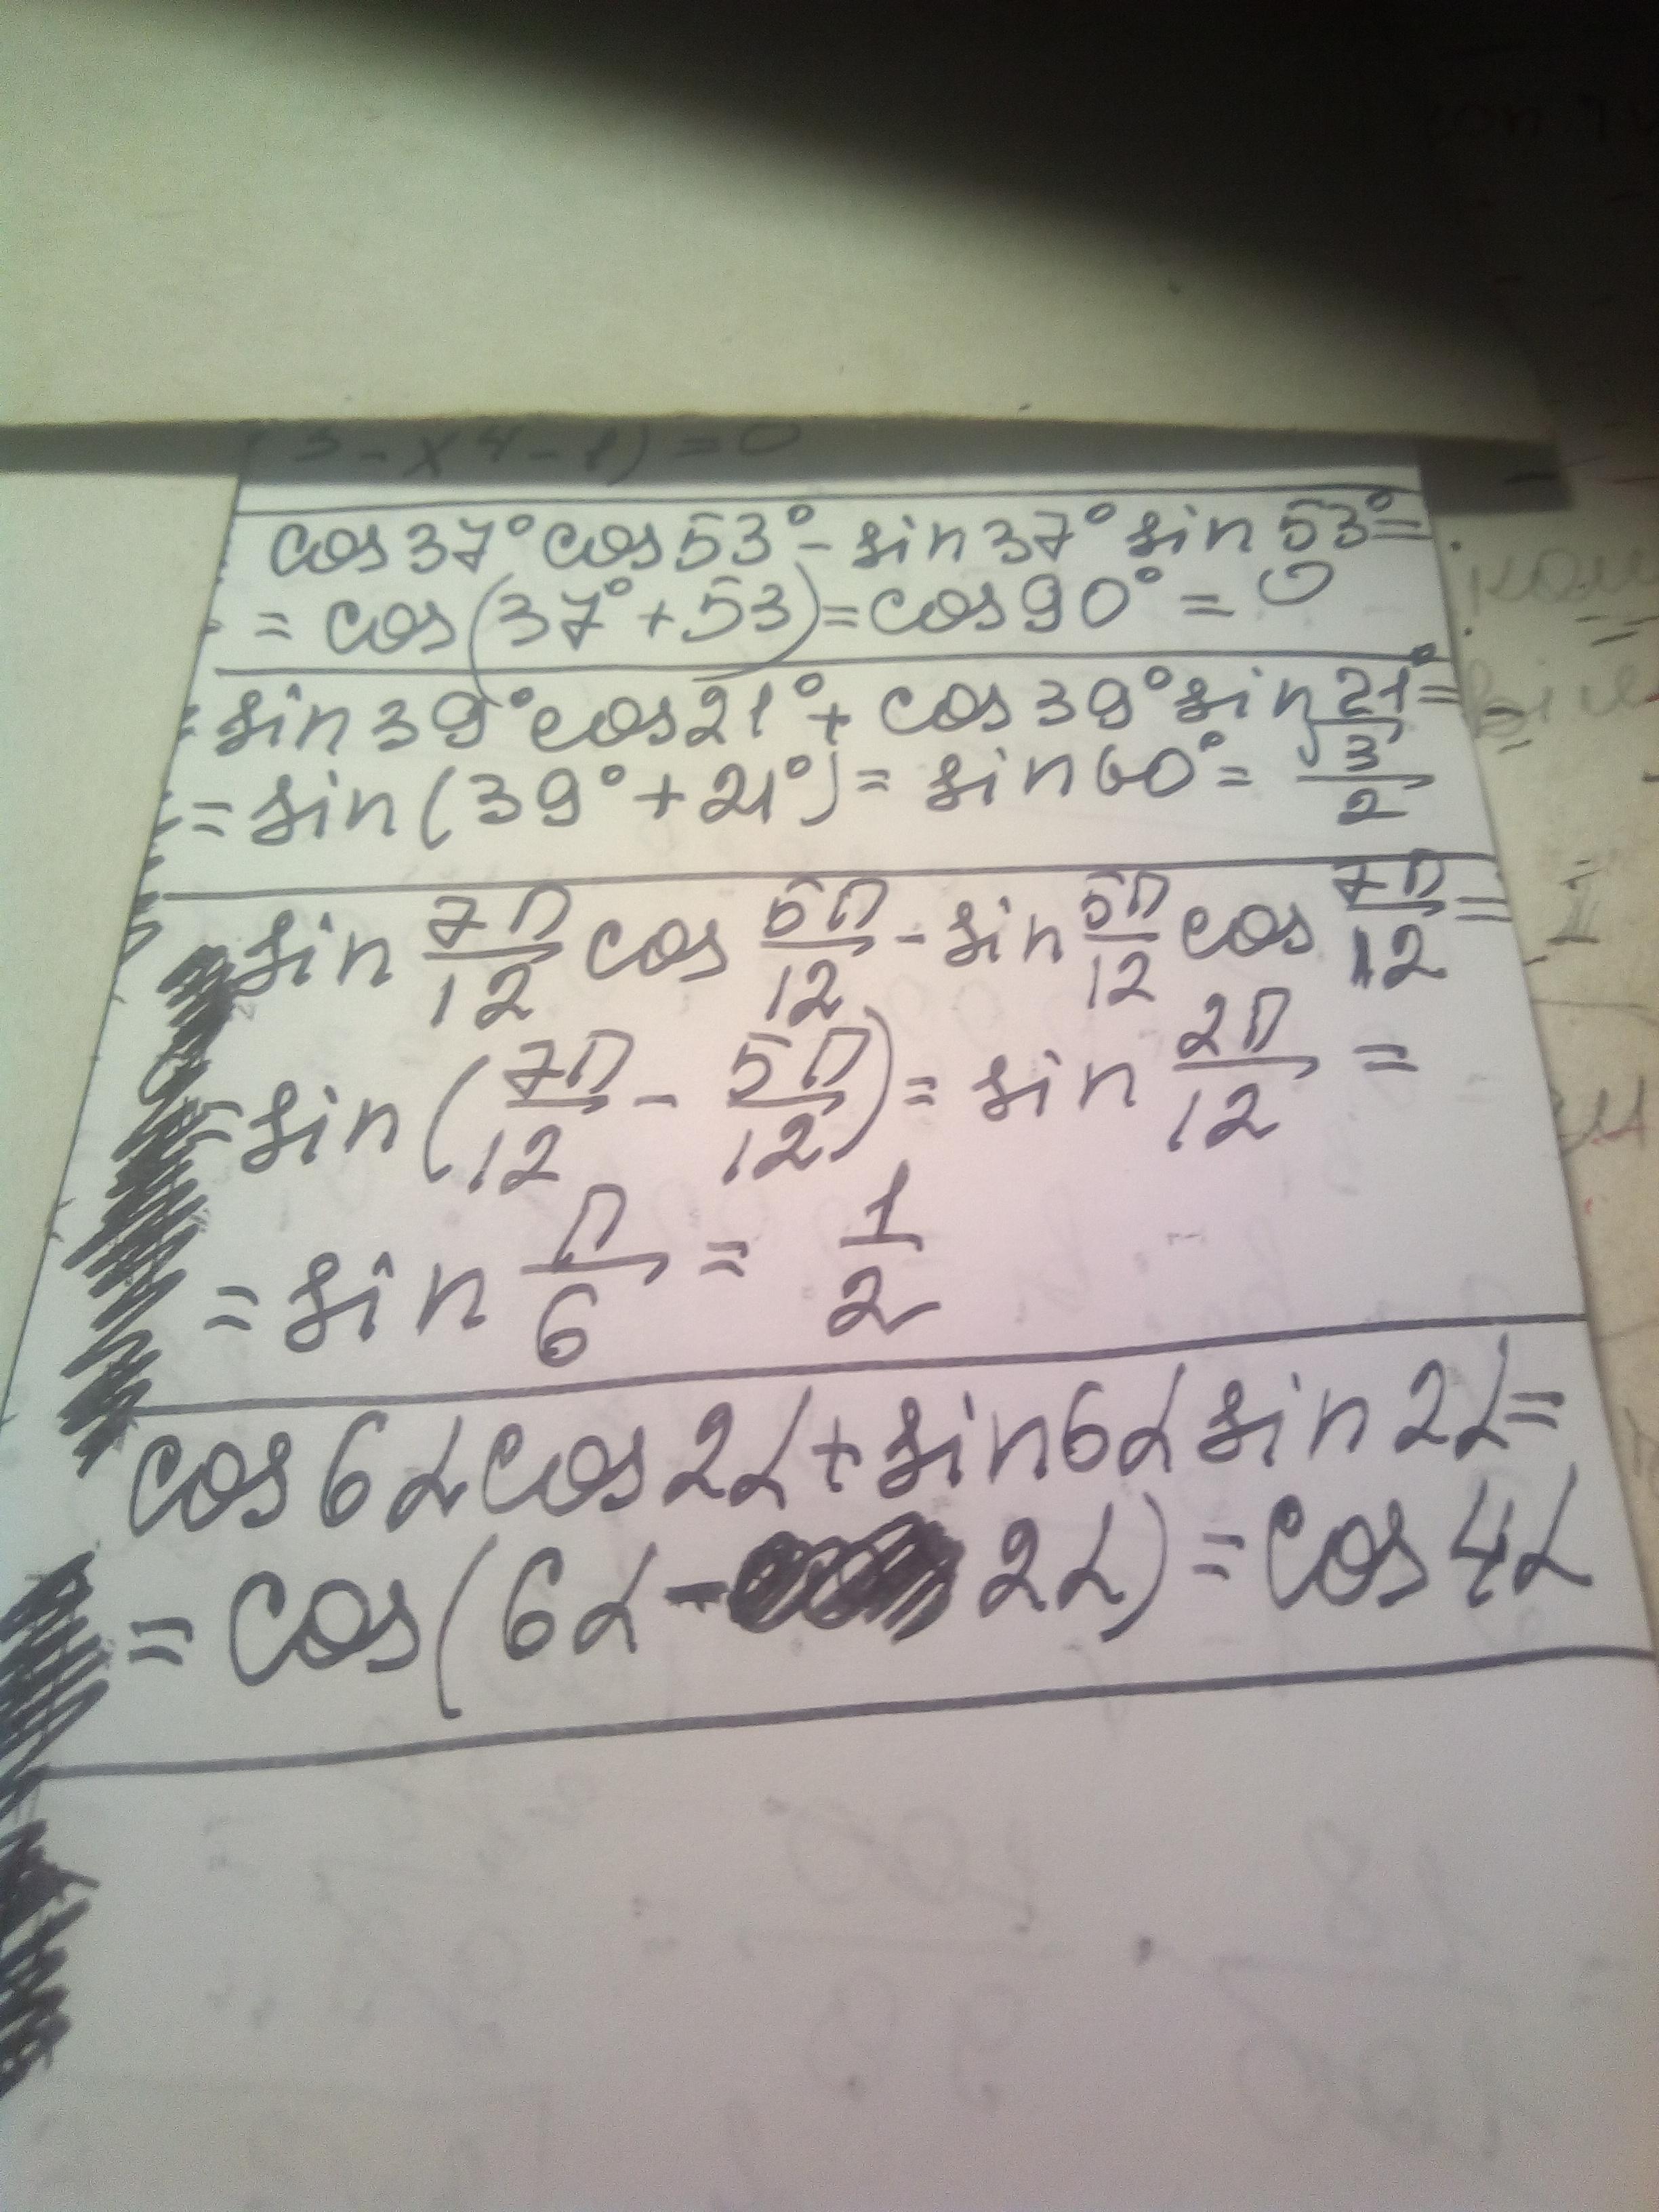 3 - x 4 - 1) = 0
cos 37° cos 53° - sin 37° sin 53° =
= cos (37° + 53) = cos 90° = 0
sin 39° cos 21° + cos 39° sin 21° =
= sin (39° + 21°) = sin 60° = √3/2
sin 7π/12 cos 5π/12 - sin 5π/12 cos 7π/12 =
= sin (7π/12 - 5π/12) = sin 2π/12 =
= sin π/6 = 1/2
cos 6α cos 2α + sin 6α sin 2α =
= cos (6α - 2α) = cos 4α